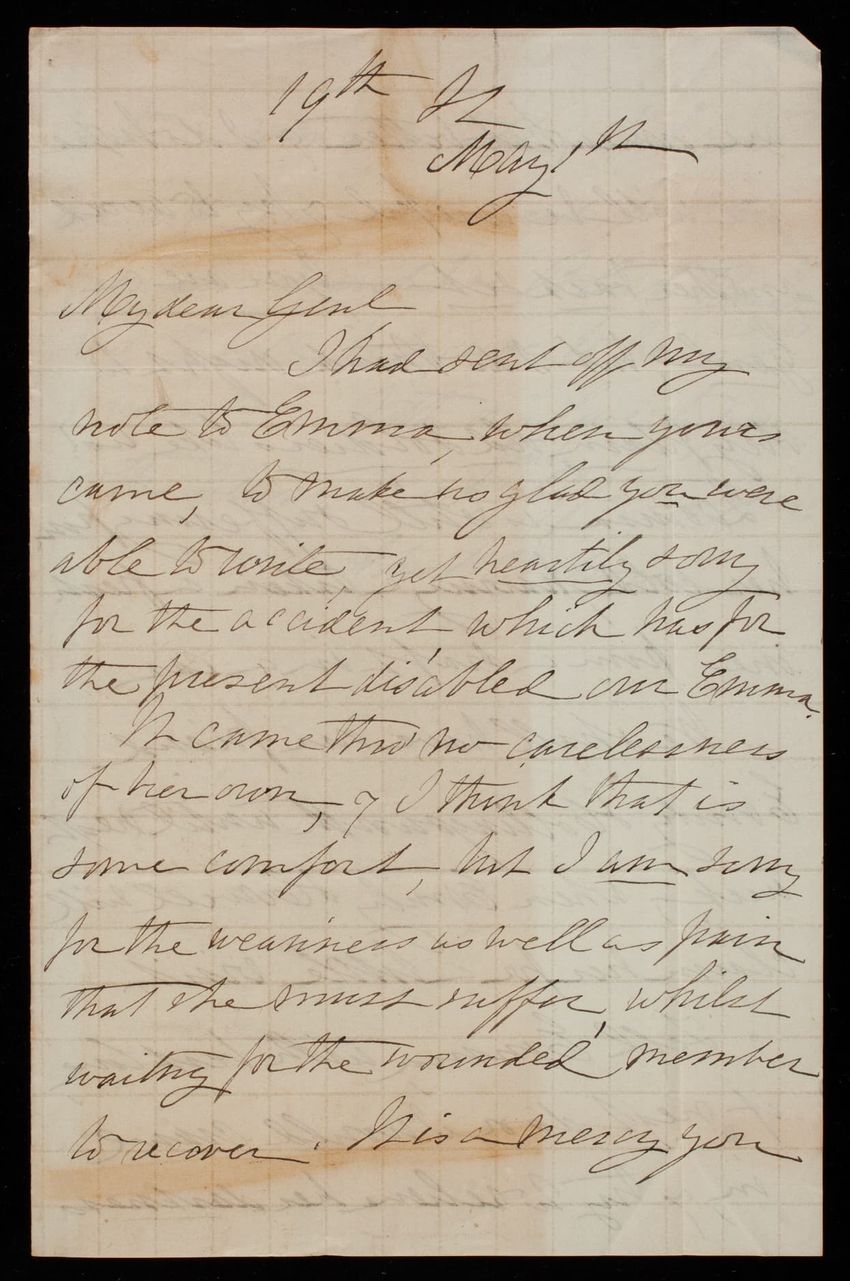 19th St
May 1st
My dear Genl,
I had sent off my
note to Emma, when yours
came, to make us glad you were
able to write, yet heartily sorry
for the accident, which has for
the present disabled our Emma.
It came thro' no carelessness
of her own, & I think that is
some comfort, but I am sorry
for the weariness as well as pain
that she must suffer, whilst
waiting for the wounded member
to recover. It is a mercy you